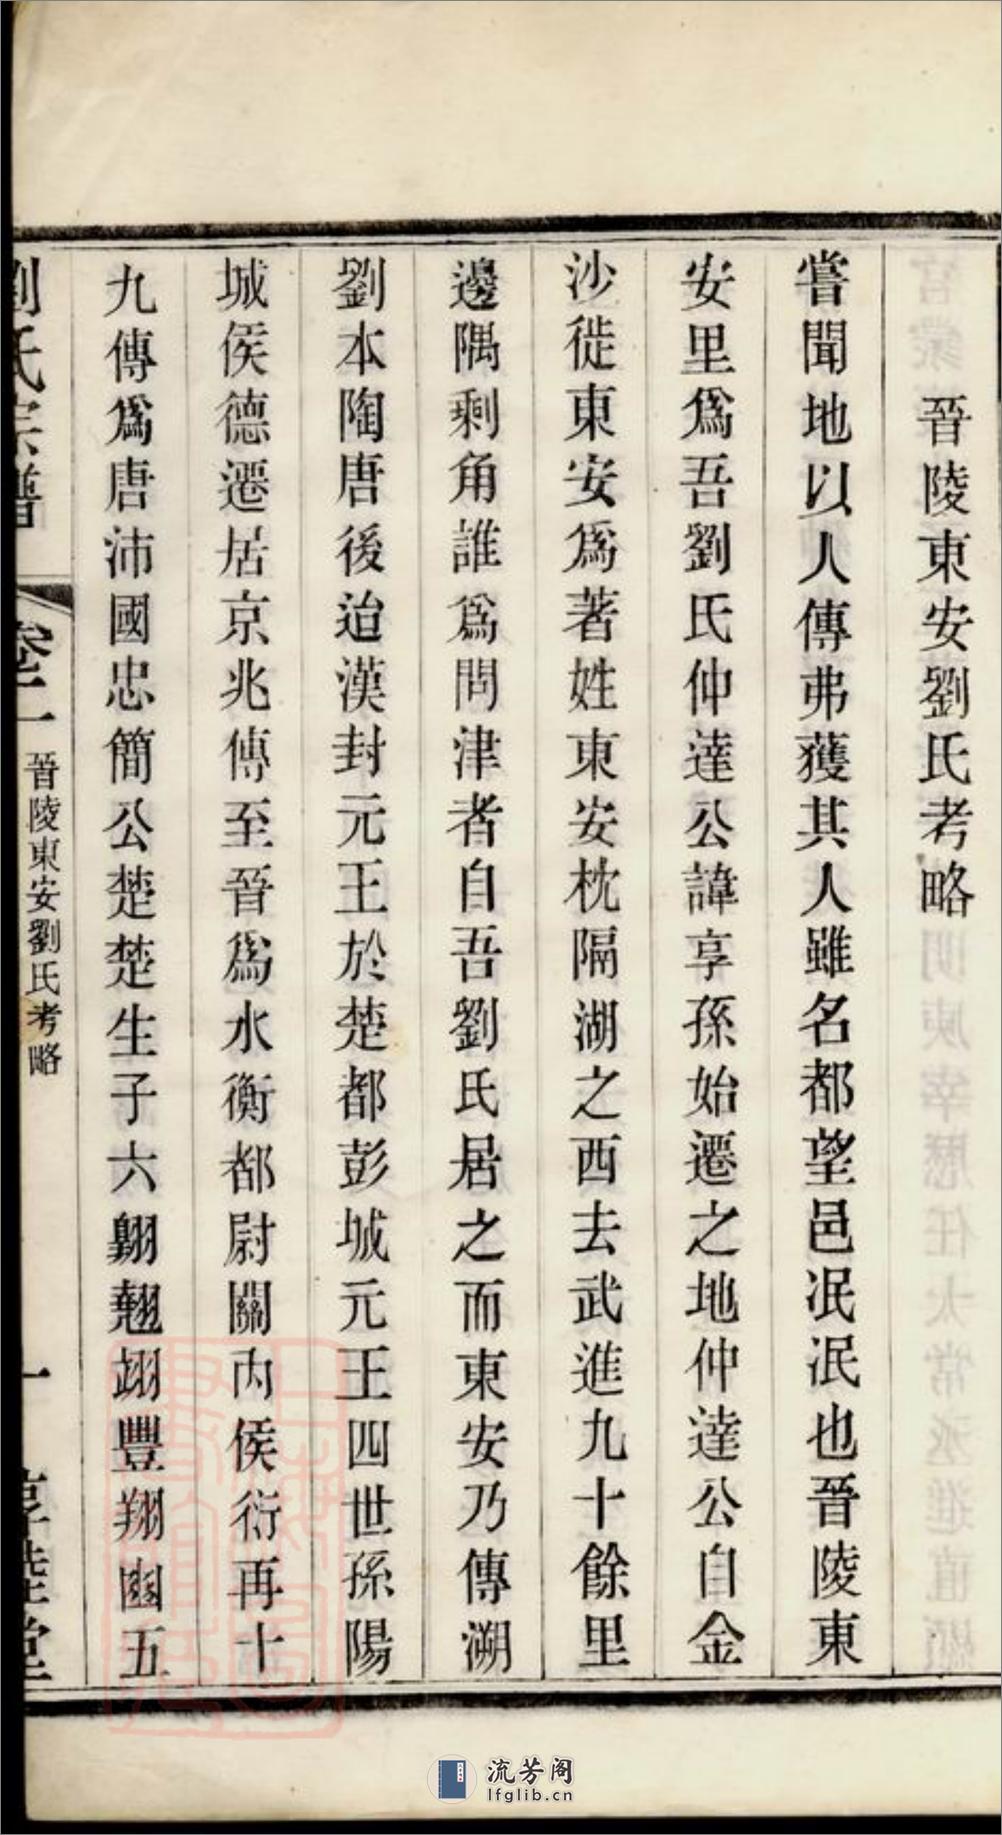 晉陵東安劉氏考略
嘗聞地以人傳弗獲其人雖名都望邑泯泯也晉陵東
安里爲吾劉氏仲達公諱享孫始遷之地仲達公自金
沙徙東安爲著姓東安枕隔湖之西去武進九十餘里
邊隅剩角誰爲問津者自吾劉氏居之而東安乃傳溯
劉本陶唐後迨漢封元王於楚都彭城元王四世孫陽
城侯德遷居京兆傳至晉爲水衡都尉關內侯衍再十
九傳爲唐沛國忠簡公楚楚生子六翺翹翊豐翔幽五
劉氏宗譜
卷一
晉陵東安劉氏考略
一
享睦堂
流芳阁
lfglib.cn